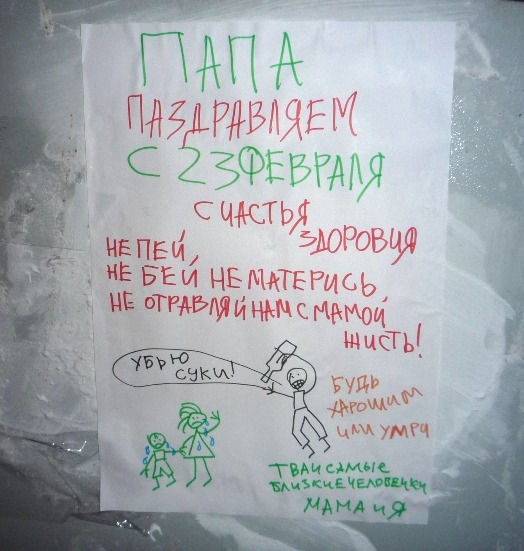 ПАПА
ПАЗДРАВЛЯЕМ
С 23 ФЕВРАЛЯ
СЧАСТЬЯ
ЗДОРОВИЯ
НЕ ПЕЙ,
НЕ БЕЙ НЕ МАТЕРИСЬ,
НЕ ОТРАВЛЯЙ НАМ С МАМОЙ
ЖИСТЬ!
УБЬЮ
СУКИ!
БУДЬ
ХАРОШИМ
ИЛИ УМРИ
ТВАИ САМЫЕ
БЛИЗКИЕ ЧЕЛОВЕЧКИ
МАМА И Я